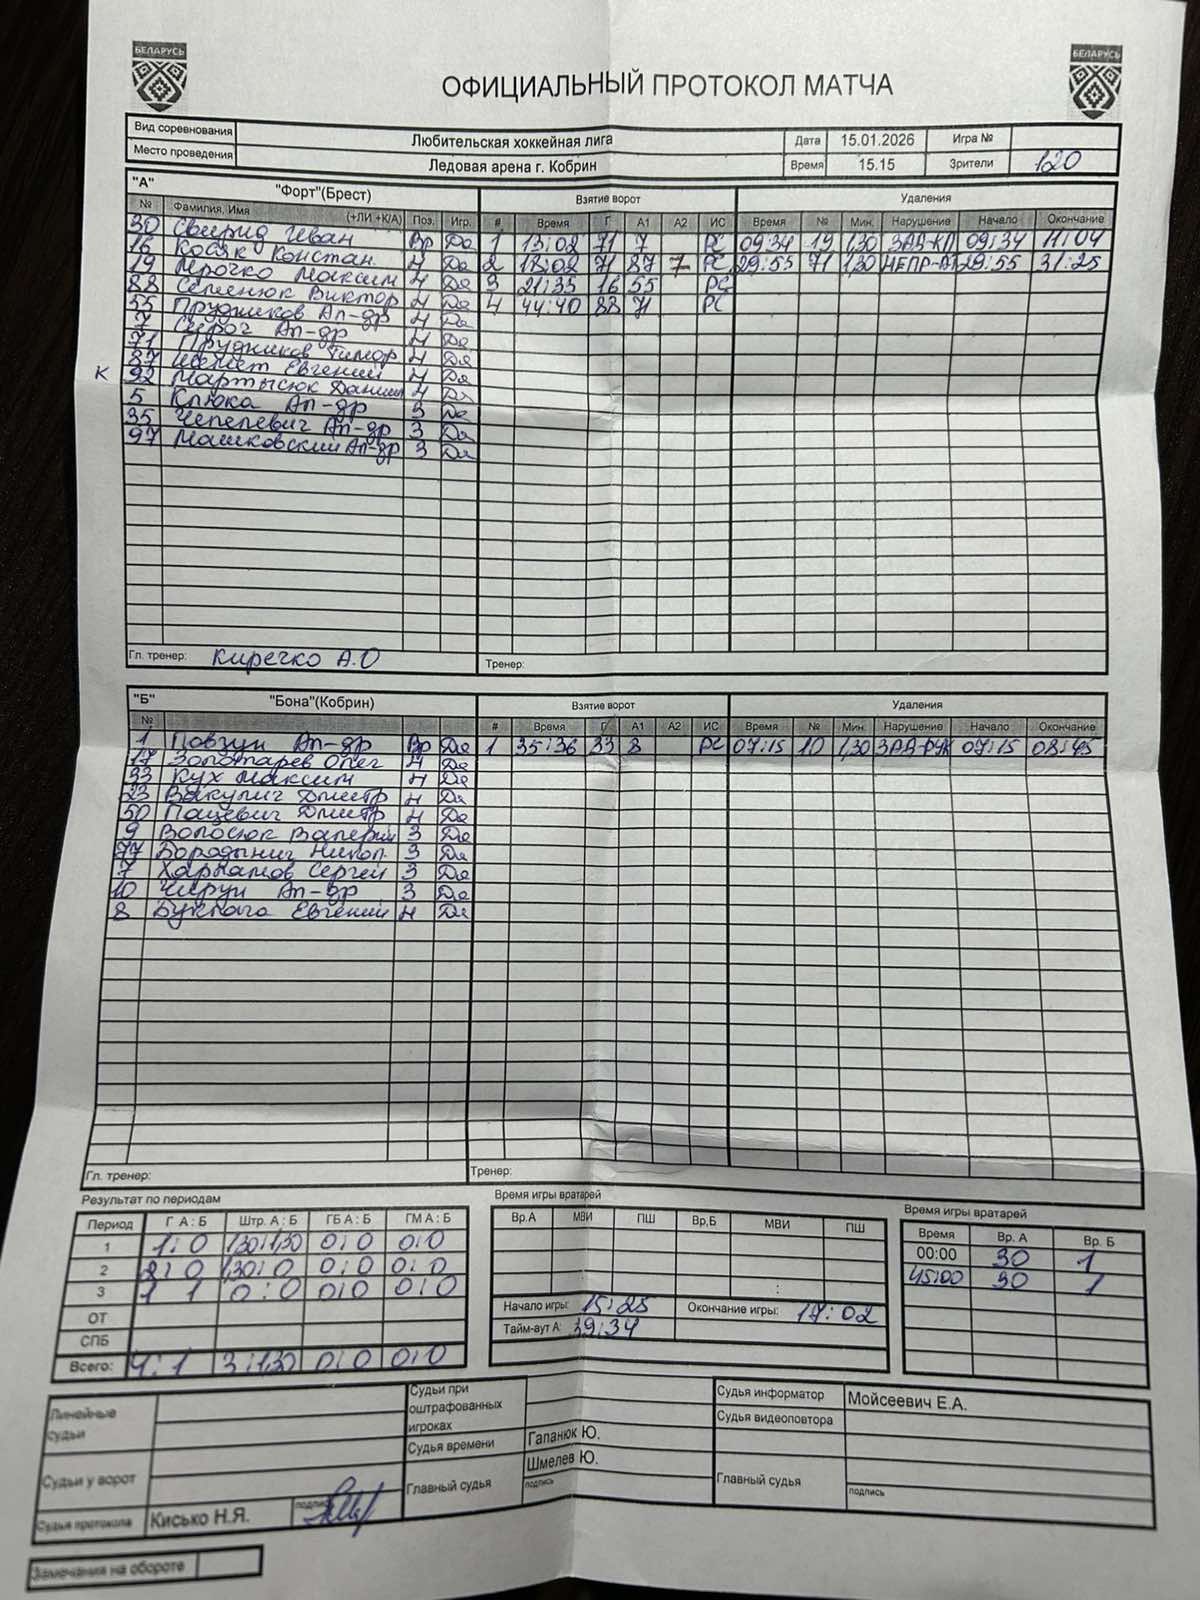 БЕЛАРУСЬ БЕЛАРУСЬ
ОФИЦИАЛЬНЫЙ ПРОТОКОЛ МАТЧА
Вид соревнования Любительская хоккейная лига Дата 15.01.2026 Игра №
Место проведения Ледовая арена г. Кобрин Время 15.15 Зрители 120
"А" "Форт"(Брест) Взятие ворот Удаления
№ Фамилия, Имя (+ЛИ +К/А) Поз. Игр. # Время Г А1 А2 ИС Время № Мин. Нарушение Начало Окончание
30 Свирид Иван Вр Да 1 13:02 71 7 РС 09:34 19 1,30 ЗАД-КЛ 09:34 11:04
16 Косяк Констан. Н Да 2 18:02 71 87 7 РС 29:55 71 1,30 НЕПР-АТ 29:55 31:25
19 Мрочко Максим Н Да 3 21:35 16 55 РС
88 Семенюк Виктор Н Да 4 44:40 88 71 РС
55 Прудников Ал-др Н Да
7 Ал-др Н Да
71 Прудников Тимор Н Да
87 Евгений Н Да
К 92 Мартысюк Даниил Н Да
5 Клюка Ал-др З Да
35 Чепелевич Ал-др З Да
97 Машковский Ал-др З Да
Гл. тренер: Киречко А.О Тренер:
"Б" "Бона"(Кобрин) Взятие ворот Удаления
№ # Время Г А1 А2 ИС Время № Мин. Нарушение Начало Окончание
1 Повзун Ал-др Вр Да 1 35:36 33 8 РС 07:15 10 1,30 ЗАД-РУК 07:15 08:45
17 Золотарев Олег Н Да
33 Кух Максим Н Да
23 Вакулич Дмитр Н Да
50 Пацевич Дмитр Н Да
9 Волосюк Валерий З Да
77 Бородынич Никол. З Да
7 Харламов Сергей З Да
10 Чирун Ал-др З Да
8 Букпага Евгений Н Да
Гл. тренер: Тренер:
Результат по периодам Время игры вратарей Время игры вратарей
Период Г А : Б Штр. А : Б ГБ А : Б ГМ А : Б Вр.А МВИ ПШ Вр,Б МВИ ПШ Время Вр. А Вр. Б
1 1:0 1,30:1,30 0:0 0:0 00:00 30 1
2 2:0 1,30:0 0:0 0:0 45:00 30 1
3 1 1 0:0 0:0 0:0 :
ОТ Начало игры: 15:25 Окончание игры: 17:02
СПБ Тайм-аут А: 39:34
Всего: 4:1 3:1,30 0:0 0:0
Линейные судьи Судьи при оштрафованных игроках Судья информатор Мойсеевич Е.А.
Судья видеоповтора
Судьи у ворот Судья времени Гапанюк Ю.
Главный судья Шмелев Ю. Главный судья
подпись подпись
Судья протокола Кисько Н.Я. подпись
Замечания на обороте